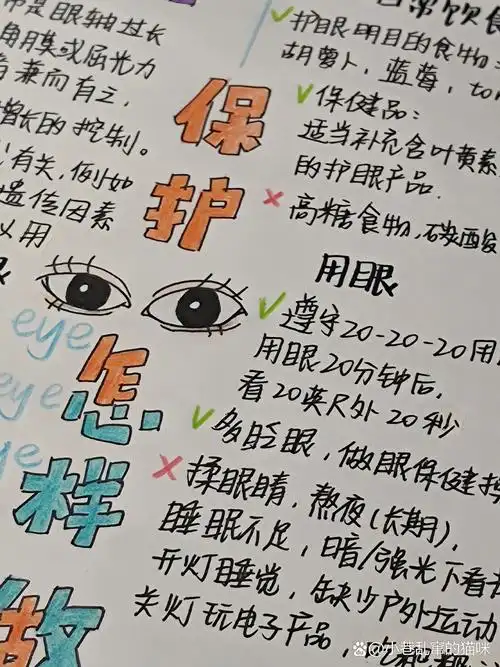 常是眼轴过长
角膜或屈光力
者兼而有之,
增长的控制。
有关,例如
遗传因素
以用
日常饮食
✓护眼明目的食物:
胡萝卜,蓝莓,tom
✓保健品:
适当补充含叶黄素
的护眼产品.
×高糖食物,碳酸
保
护
eye
eye
eye
怎
样
做
用眼
✓遵守20-20-20用
用眼20分钟后,
看20英尺外20秒
✓多眨眼,做眼保健操
×揉眼睛,熬夜(长期),
睡眠不足,暗/强光下看书
开灯睡觉,缺少户外运动
关灯玩电子产品,
小巷乱窜的猫咪